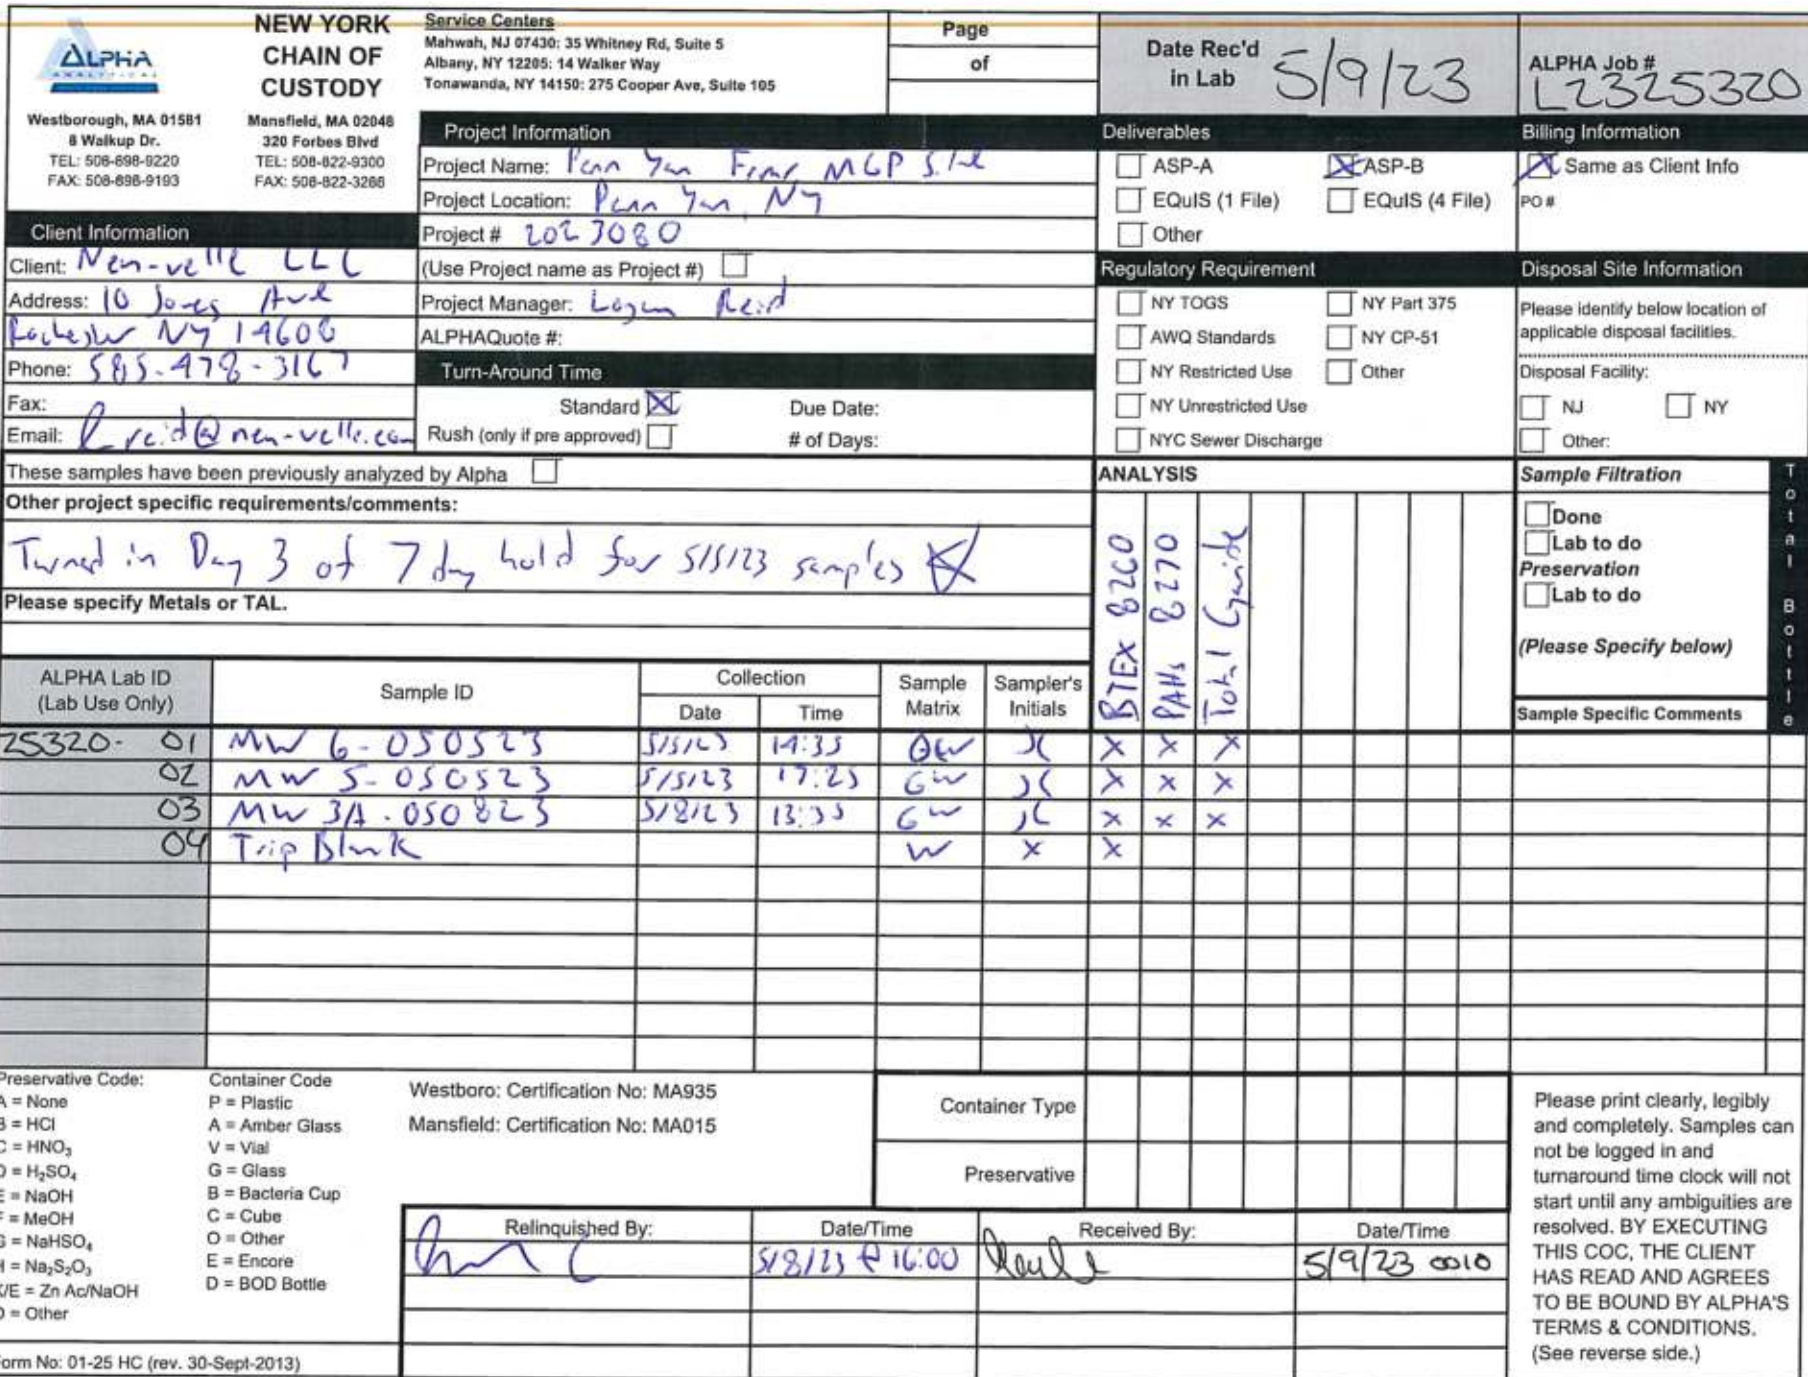 ALPHA
ANALYTICAL
Westborough, MA 01581
8 Walkup Dr.
TEL: 508-898-9220
FAX: 508-898-9193
NEW YORK
CHAIN OF
CUSTODY
Mansfield, MA 02048
320 Forbes Blvd
TEL: 508-822-9300
FAX: 508-822-3288
Service Centers
Mahwah, NJ 07430: 35 Whitney Rd, Suite 5
Albany, NY 12205: 14 Walker Way
Tonawanda, NY 14150: 275 Cooper Ave, Suite 105
Page
of
Date Rec'd
in Lab
5/9/23
ALPHA Job #
L2325320
Client Information
Client: Nen-velle LLC
Address: 10 Jones Ave
Rochester NY 14608
Phone: 585-478-3167
Fax:
Email: lreid@nen-velle.com
Project Information
Project Name: Penn Yan MGP Site
Project Location: Penn Yan, NY
Project # 2023080
(Use Project name as Project #)
Project Manager: Logan Reid
ALPHAQuote #:
Turn-Around Time
Standard X Due Date:
Rush (only if pre approved) # of Days:
Deliverables
ASP-A X ASP-B
EQuIS (1 File) EQuIS (4 File)
Other
Regulatory Requirement
NY TOGS NY Part 375
AWQ Standards NY CP-51
NY Restricted Use Other
NY Unrestricted Use
NYC Sewer Discharge
Billing Information
X Same as Client Info
PO #
Disposal Site Information
Please identify below location of
applicable disposal facilities.
Disposal Facility:
NJ NY
Other:
These samples have been previously analyzed by Alpha
Other project specific requirements/comments:
Turned in Day 3 of 7 day hold for 5/5/23 samples
Please specify Metals or TAL.
ANALYSIS
BTEX 8260
PAHs 8270
Total Cyanide
Sample Filtration
Done
Lab to do
Preservation
Lab to do
(Please Specify below)
Sample Specific Comments
Total Bottle
ALPHA Lab ID
(Lab Use Only)
Sample ID
Collection
Date Time
Sample
Matrix
Sampler's
Initials
25320- 01 MW 6-050523 5/5/23 14:35 GW X X X
02 MW 5-050523 5/5/23 17:25 GW X X X
03 MW 3A-050823 5/8/23 13:35 GW X X X
04 Trip Blank W X X
Preservative Code:
A = None
B = HCl
C = HNO₃
D = H₂SO₄
E = NaOH
F = MeOH
G = NaHSO₄
H = Na₂S₂O₃
K/E = Zn Ac/NaOH
O = Other
Container Code
P = Plastic
A = Amber Glass
V = Vial
G = Glass
B = Bacteria Cup
C = Cube
O = Other
E = Encore
D = BOD Bottle
Westboro: Certification No: MA935
Mansfield: Certification No: MA015
Container Type
Preservative
Relinquished By: Date/Time Received By: Date/Time
5/8/23 @ 16:00 5/9/23 0010
Please print clearly, legibly
and completely. Samples can
not be logged in and
turnaround time clock will not
start until any ambiguities are
resolved. BY EXECUTING
THIS COC, THE CLIENT
HAS READ AND AGREES
TO BE BOUND BY ALPHA'S
TERMS & CONDITIONS.
(See reverse side.)
Form No: 01-25 HC (rev. 30-Sept-2013)